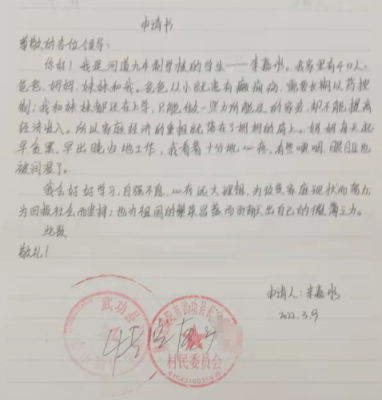 申请书
尊敬的各位领导：
你好！我是河道九年制学校的学生——朱嘉水。我家里有4口人：
爸爸、妈妈、妹妹和我。爸爸从小就患有癫痫病，需要长期以药控
制；我和妹妹都还在上学，只能做一些力所能及的家务，却不能提高
经济收入。所以家庭经济的重担就落在了妈妈的肩上。妈妈每天起
早贪黑、早出晚归地工作，我看着十分地心疼，有些哽咽，眼眶也
被润湿了。
我会好好学习，自强不息，心有远大理想，为改变家庭现状而努力，
为回报社会而坚持；也为祖国的繁荣昌盛而贡献出自己的微薄之力。
此致
敬礼！
申请人：朱嘉水
2022.3.9
武功县
村民委员会